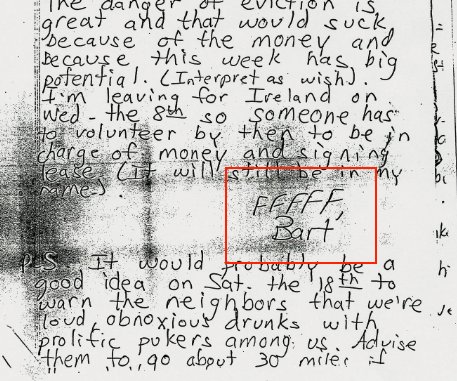 The danger of eviction is
great and that would suck
because of the money and
because this week has big
potential. (Interpret as wish).
I'm leaving for Ireland on
Wed - the 8th so someone has
to volunteer by then to be in
charge of money and signing
lease (it will still be in my
name).
FFFFFF,
Bart
P.S. It would probably be a
good idea on Sat. the 18th to
warn the neighbors that we're
loud, obnoxious drunks with
prolific pukers among us. Advise
them to go about 30 miles if